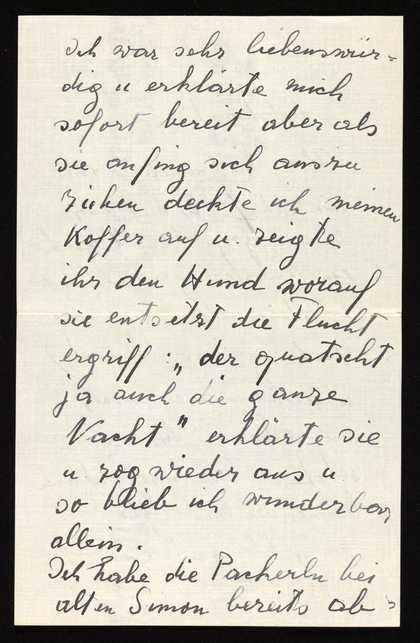 Ich war sehr liebenswür-
dig u erklärte mich
sofort bereit aber als
sie anfing sich auszu
ziehen deckte ich meinen
Koffer auf u. zeigte
ihr den Hund worauf
sie entsetzt die Flucht
ergriff: „der quatscht
ja auch die ganze
Nacht" erklärte sie
u zog wieder aus u
so blieb ich wunderbar
allein.
Ich habe die Packerln bei
alten Simon bereits ab-